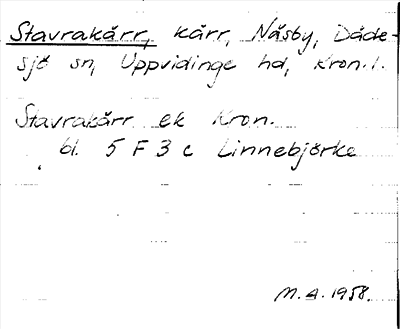 Stavrakärr, kärr, Näsby, Däde-
sjö sn, Uppvidinge hd, Kron. l.
Stavrakärr ek Kron.
bl. 5 F 3 c Linnebjörke
M.A. 1958.